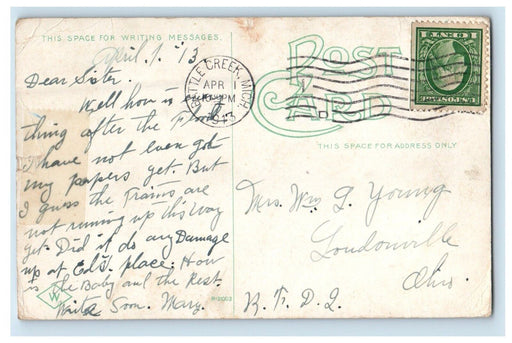 THIS SPACE FOR WRITING MESSAGES.
POST
CARD
1 CENT 1
U.S. POSTAGE
BATTLE CREEK, MICH.
APR 1
PM
1913
THIS SPACE FOR ADDRESS ONLY
April, 1. '13
Dear Sister.
Well how is every
thing after the flood
I have not even got
my papers yet. But
I guess the trains are
not running up this way
yet. Did it do any Damage
up at Ed's. place. How
is the Baby and the Rest.
Write Soon. Mary.
W
Mrs. Wm L. Young
Loudonville
Ohio.
R.F.D. 2.